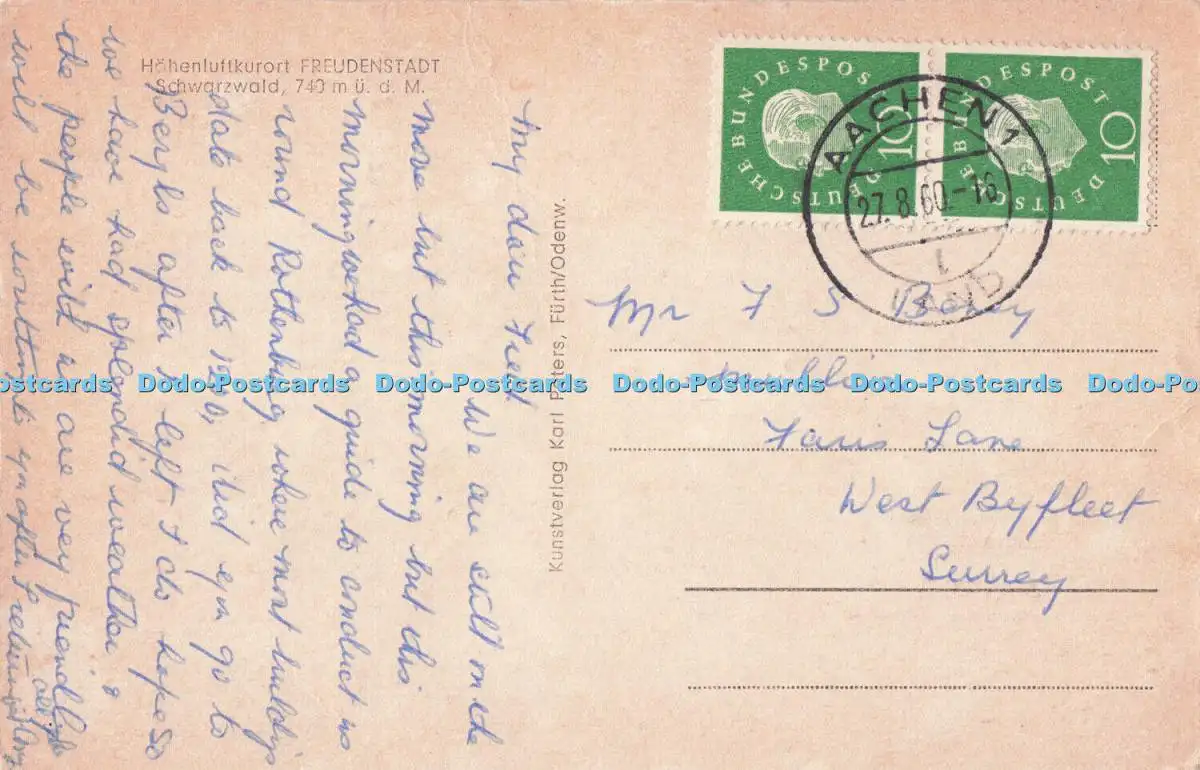 Höhenluftkurort FREUDENSTADT
Schwarzwald, 740 m ü. d. M.
My dear Fred
We are still on the
move but this morning but this
morning we had a guide to conduct us
round Rothenburg where most buildings
date back to
Beryls after I left & do hope so
we have had splendid weather &
the people with us are very friendly
will be writing
Kunstverlag Karl Peters, Fürth/Odenw.
DEUTSCHE BUNDESPOST 10
DEUTSCHE BUNDESPOST 10
AACHEN 1
27.8.60.-16
Mr F S
Faris Lane
West Byfleet
Surrey
Dodo-Postcards Dodo-Postcards Dodo-Postcards Dodo-Postcards Dodo-Postcards Dodo-Postcards